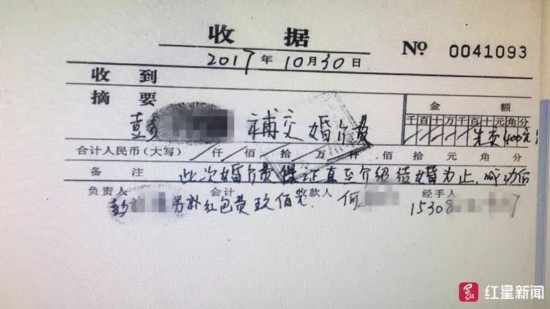 收据
2017年10月30日 No 0041093
收到
摘要 金额
补交婚介费 千百十万千百十元角分
合计人民币(大写) 仟佰拾万仟佰拾元角分
备注 此次婚介费保证直至介绍结婚为止,成功后
负责人 会计 收款人 经手人
男补红包费玖佰元 何 15308 7
红星新闻